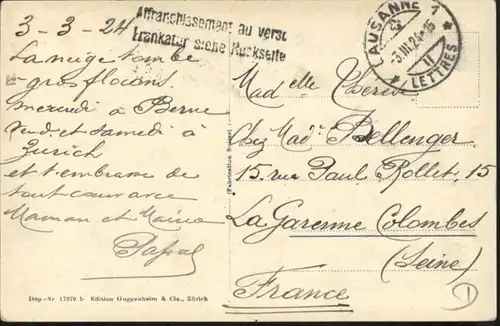 3-3-24
La neige tombe
à gros flocons.
mercredi à Berne
vend. et samedi à
Zurich
et t'embrasse de
tout cœur avec
Maman et
Papal
Affranchissement au verso
Frankatur siehe Rückseite
LAUSANNE 1
3.III.24
II
LETTRES
Madelle Thérèse
Chez Made Bellenger
15, rue Paul Rollet, 15
La Garenne Colombes
(Seine)
France
Fabrication Suisse
Dép-Nr 17379 b Edition Guggenheim & Cie., Zürich